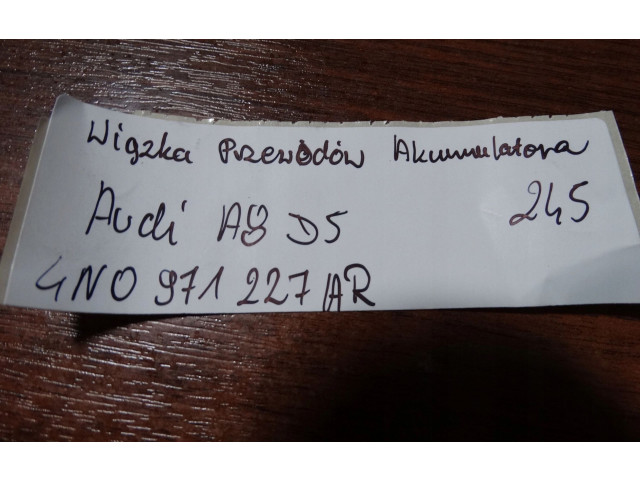 Wiązka Przewodów Akumulatora
Audi A8 D5 245
4N0 971 227 AR